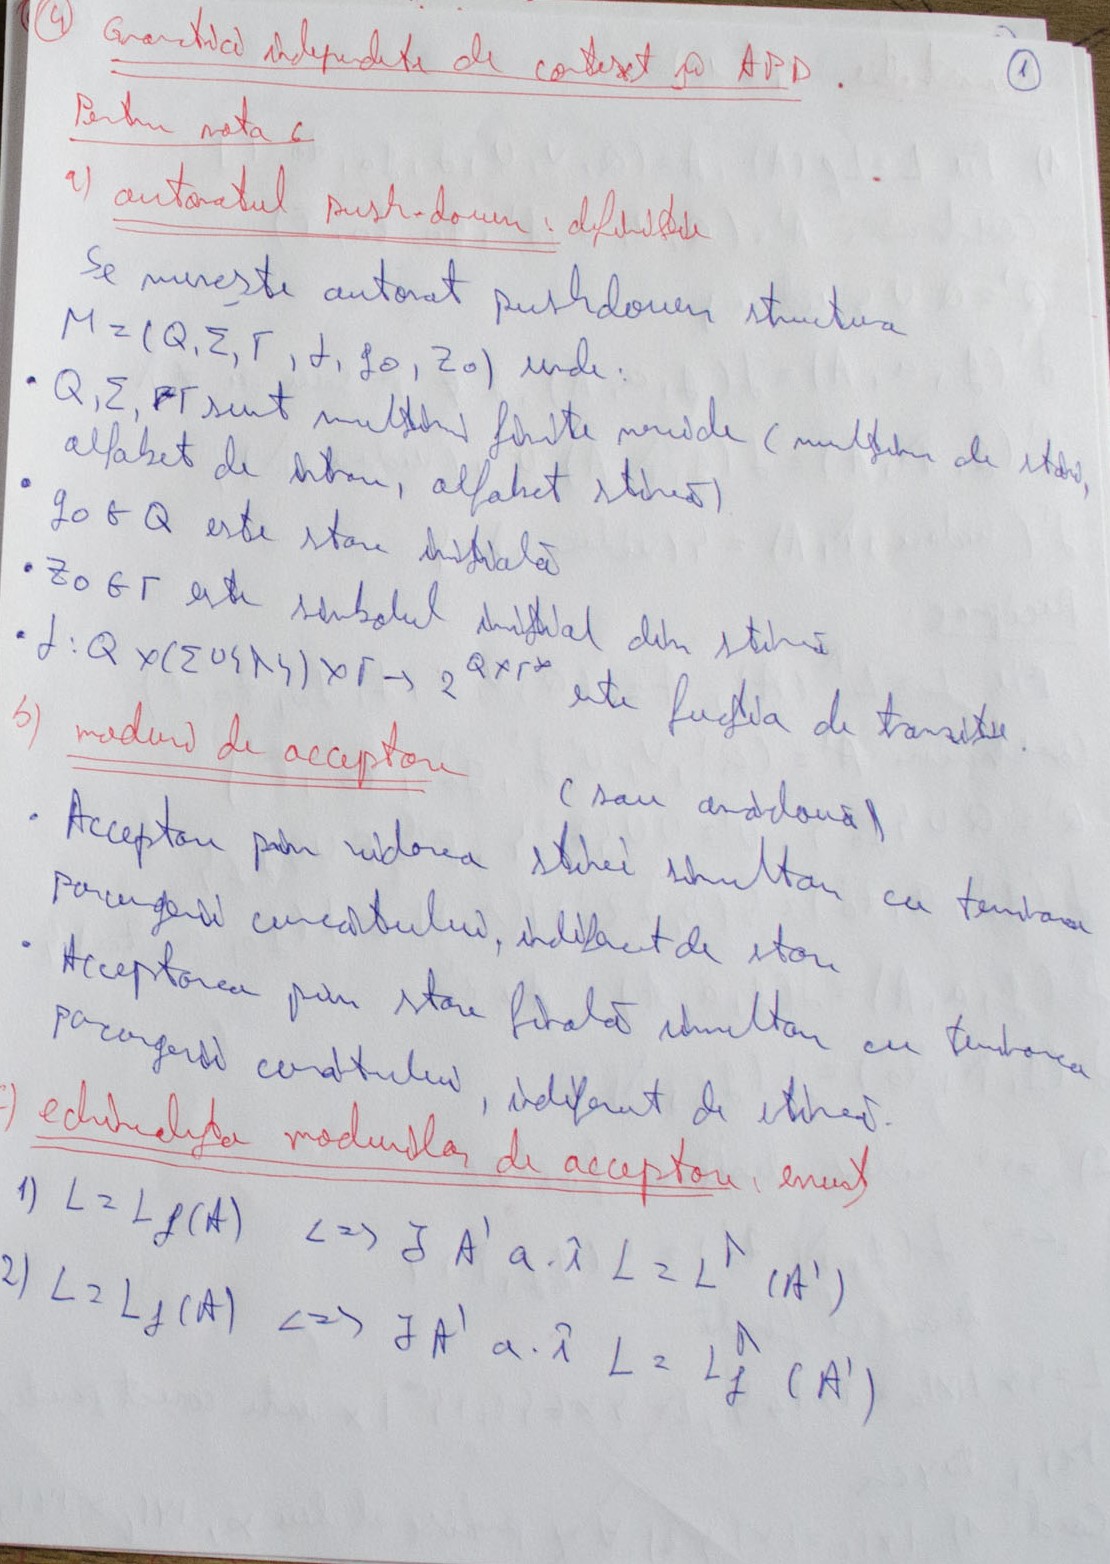 ④ Gramatici independente de context și APD.
①
Pentru nota 6
a) automatul push-down: definiție
Se numește automat pushdown structura
M=(Q,Σ,Γ,δ,q0,Z0) unde:
• Q,Σ,Γ sunt mulțimi finite nevide (mulțimi de stări,
alfabet de intrare, alfabet stivă)
• q0∈Q este stare inițială
• Z0∈Γ este simbolul inițial din stivă
• δ:Q×(Σ∪{Λ})×Γ→2^Q×Γ* este funcția de tranziție.
b) moduri de acceptare
(sau amândouă)
• Acceptare prin vidarea stivei simultan cu terminarea
parcurgerii cuvântului, indiferent de stare
• Acceptarea prin stare finală simultan cu terminarea
parcurgerii cuvântului, indiferent de stivă.
c) echivalența modurilor de acceptare, enunț
1) L=Lf(A) <=> ∃ A' a.î L=L^Λ(A')
2) L=Lf(A) <=> ∃ A' a.î L=Lf^Λ(A')